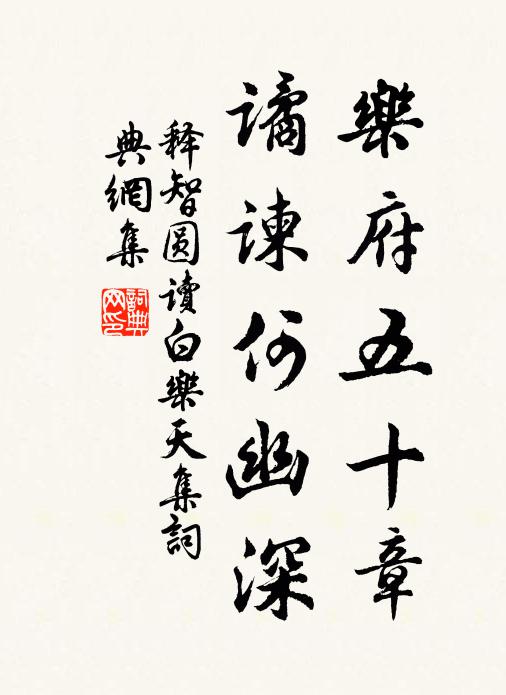 樂府五十章
譎諫何幽深
释智圆讀白樂天集詞
典網集
詞典網印